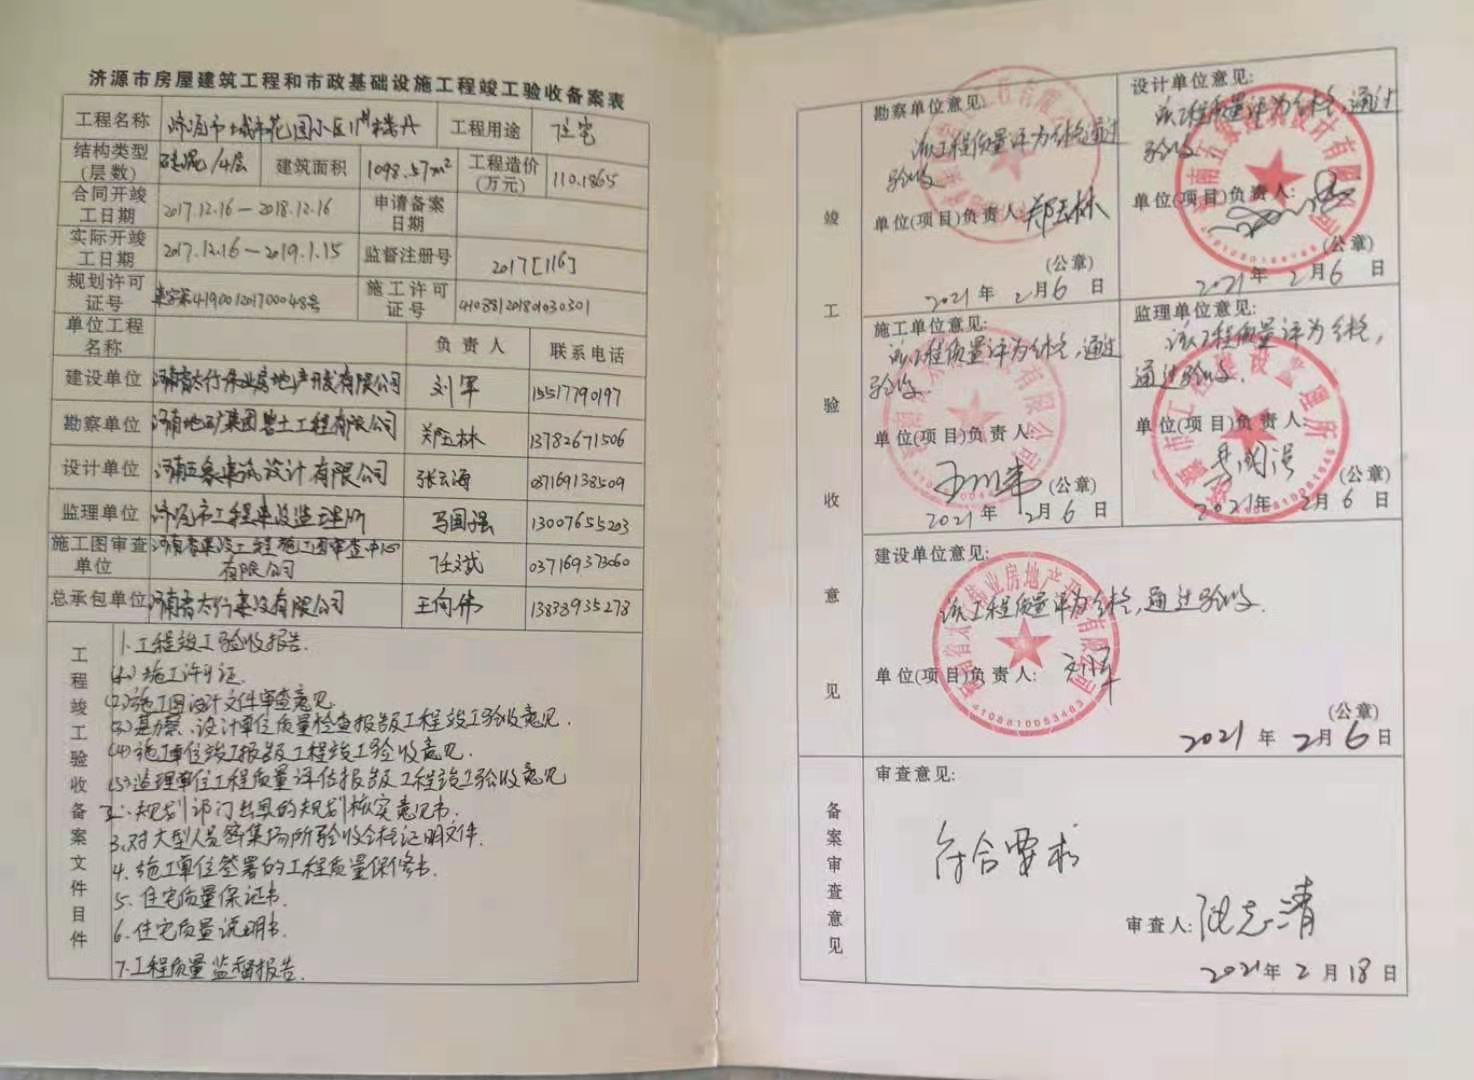 济源市房屋建筑工程和市政基础设施工程竣工验收备案表
工程名称 济源市城市花园小区11#楼 工程用途 住宅
结构类型(层数) 砖混/4层 建筑面积 1098.57m² 工程造价(万元) 110.1865
合同开竣工日期 2017.12.16-2018.12.16 申请备案日期
实际开竣工日期 2017.12.16-2019.1.15 监督注册号 2017[116]
规划许可证号 建字第419001201700048号 施工许可证号 410881201801030301
单位工程名称 负责人 联系电话
建设单位 河南省太行伟业房地产开发有限公司 刘军 15517790197
勘察单位 河南地矿集团岩土工程有限公司 郑玉林 13782671506
设计单位 河南五象建筑设计有限公司 张云海 037169138509
监理单位 济源市工程建设监理所 马国强 13007655203
施工图审查单位 河南省建设工程施工图审查中心有限公司 任斌 037169373060
总承包单位 河南省太行建设有限公司 王向伟 13838935278
工程竣工验收备案文件目件
1.工程竣工验收报告.
(1)施工许可证.
(2)施工图设计文件审查意见
(3)勘察、设计单位质量检查报告及工程竣工验收意见.
(4)施工单位竣工报告及工程竣工验收意见.
(5)监理单位工程质量评估报告及工程竣工验收意见
2.规划部门出具的规划核实意见书.
3.对大型人员密集场所验收合格证明文件.
4.施工单位签署的工程质量保修书.
5.住宅质量保证书.
6.住宅质量说明书.
7.工程质量监督报告.
竣工验收意见
勘察单位意见:
该工程质量评为合格,通过验收
单位(项目)负责人:郑玉林
(公章)
2021年2月6日
设计单位意见:
该工程质量评为合格,通过验收
单位(项目)负责人:
(公章)
2021年2月6日
施工单位意见:
该工程质量评为合格,通过验收
单位(项目)负责人:
(公章)
2021年2月6日
监理单位意见:
该工程质量评为合格,通过验收.
单位(项目)负责人:
(公章)
2021年2月6日
建设单位意见:
该工程质量评为合格,通过验收.
单位(项目)负责人:刘军
4108810053463
(公章)
2021年2月6日
备案审查意见
审查意见:
符合要求
审查人:
2021年2月18日